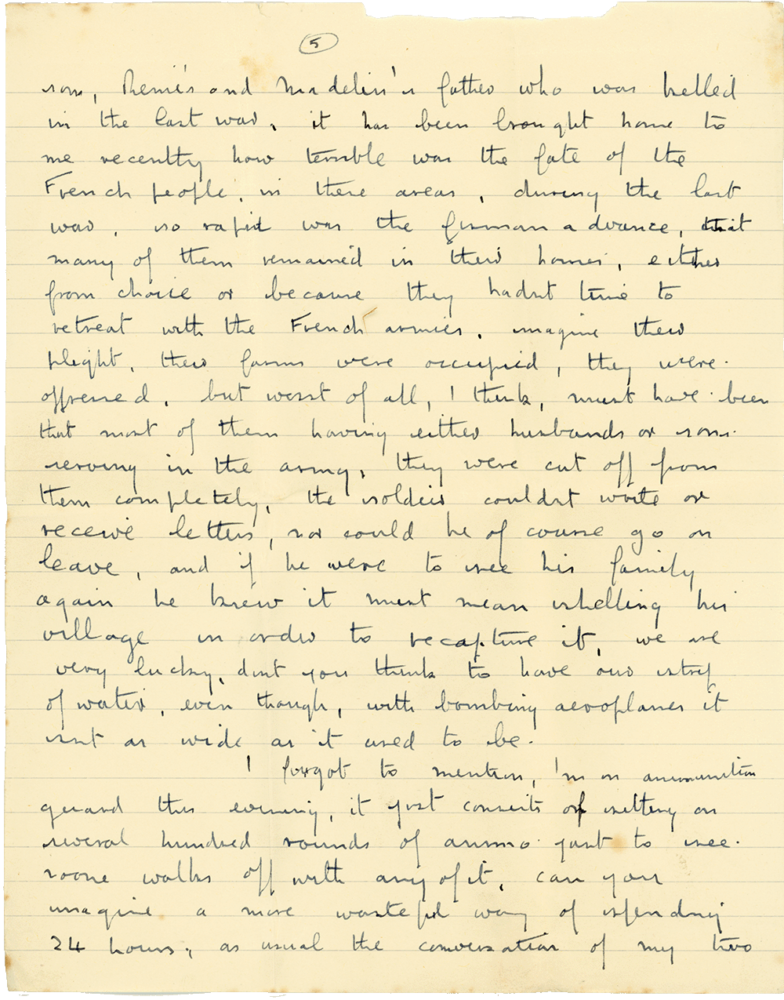 5
son, René's and Madelin's father who was killed
in the last war, it has been brought home to
me recently how terrible was the fate of the
French people, in these areas, during the last
war, so rapid was the German advance, that
many of them remained in their homes, either
from choice or because they hadnt time to
retreat with the French armies, imagine their
plight, their farms were occupied, they were
oppressed, but worst of all, I think, must have been
that most of them having either husbands or sons
serving in the army, they were cut off from
them completely, the soldier couldnt write or
receive letters, nor could he of course go on
leave, and if he were to see his family
again he knew it must mean shelling his
village in order to recapture it, we are
very lucky, dont you think to have our strip
of water, even though, with bombing aeroplanes it
isnt as wide as it used to be.
I forgot to mention, I'm on ammunition
guard this evening, it just consists of sitting on
several hundred rounds of ammo just to see
noone walks off with any of it, can you
imagine a more wasteful way of spending
24 hours, as usual the conversation of my two